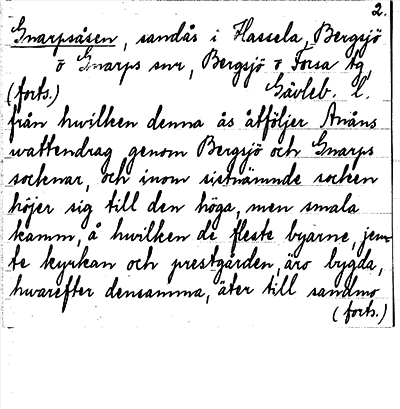 2.
Gnarpsåsen, sandås i Hassela, Bergsjö
o Gnarps snr, Bergsjö o Forsa tg
(forts.) Gävleb. l.
från hwilken denna ås åtföljer Anåns
wattendrag genom Bergsjö och Gnarps
socknar, och inom sistnämnde socken
höjer sig till den höga, men smala
kamm, å hwilken de fleste byarne, jem-
te kyrkan och prestgården, äro bygda,
hwarefter densamma, åter till sandmo
(forts.)